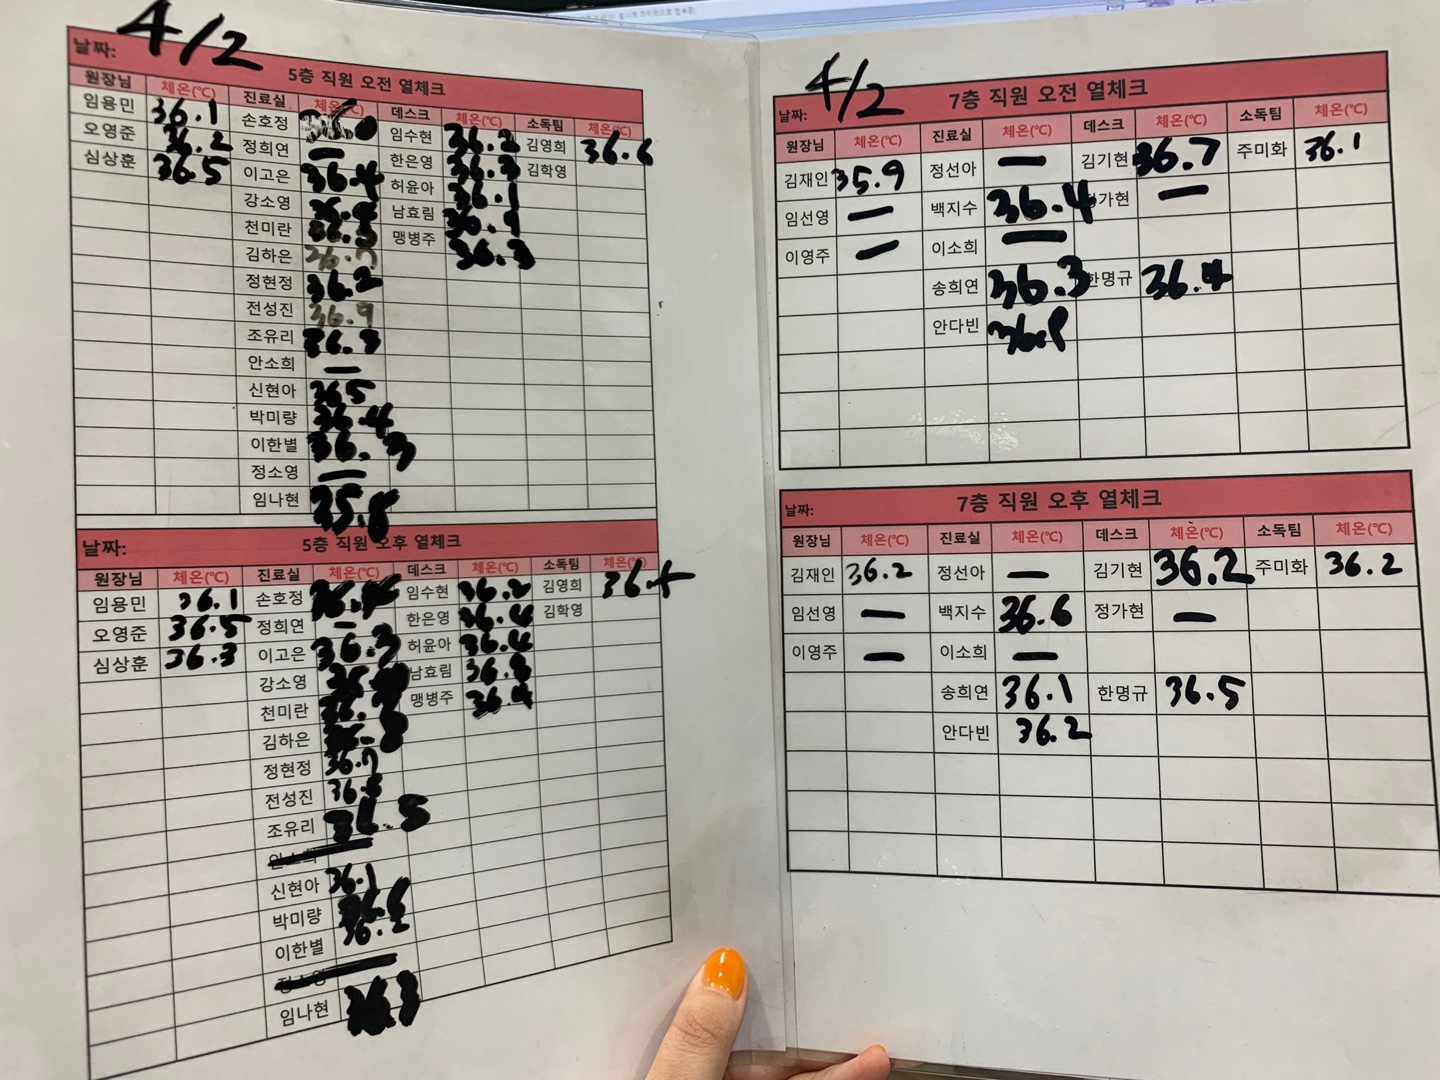 4/2
날짜: 5층 직원 오전 열체크
원장님 체온(℃) 진료실 체온(℃) 데스크 체온(℃) 소독팀 체온(℃)
임용민 36.1 손호정 임수현 36.2 김영희 36.6
오영준 36.2 정희연 — 한은영 36.3 김학영
심상훈 36.5 이고은 36.4 허윤아 36.1
강소영 남효림 36.9
천미란 맹병주 36.3
김하은 36.7
정현정 36.2
전성진 36.9
조유리 36.3
안소희 —
신현아 36.5
박미량 36.4
이한별 36.3
정소영 —
임나현 35.8
날짜: 5층 직원 오후 열체크
원장님 체온(℃) 진료실 체온(℃) 데스크 체온(℃) 소독팀 체온(℃)
임용민 36.1 손호정 임수현 36.2 김영희 36.4
오영준 36.5 정희연 — 한은영 36.4 김학영
심상훈 36.3 이고은 36.3 허윤아 36.4
강소영 남효림 36.8
천미란 맹병주 36.4
김하은
정현정 36.7
전성진 36.6
조유리 36.5
안소희
신현아 36.1
박미량 36.6
이한별 36.2
정소영
임나현 36.3
4/2
날짜: 7층 직원 오전 열체크
원장님 체온(℃) 진료실 체온(℃) 데스크 체온(℃) 소독팀 체온(℃)
김재인 35.9 정선아 — 김기현 36.7 주미화 36.1
임선영 — 백지수 36.4 정가현 —
이영주 — 이소희 —
송희연 36.3 한명규 36.4
안다빈 36.8
날짜: 7층 직원 오후 열체크
원장님 체온(℃) 진료실 체온(℃) 데스크 체온(℃) 소독팀 체온(℃)
김재인 36.2 정선아 — 김기현 36.2 주미화 36.2
임선영 — 백지수 36.6 정가현 —
이영주 — 이소희 —
송희연 36.1 한명규 36.5
안다빈 36.2